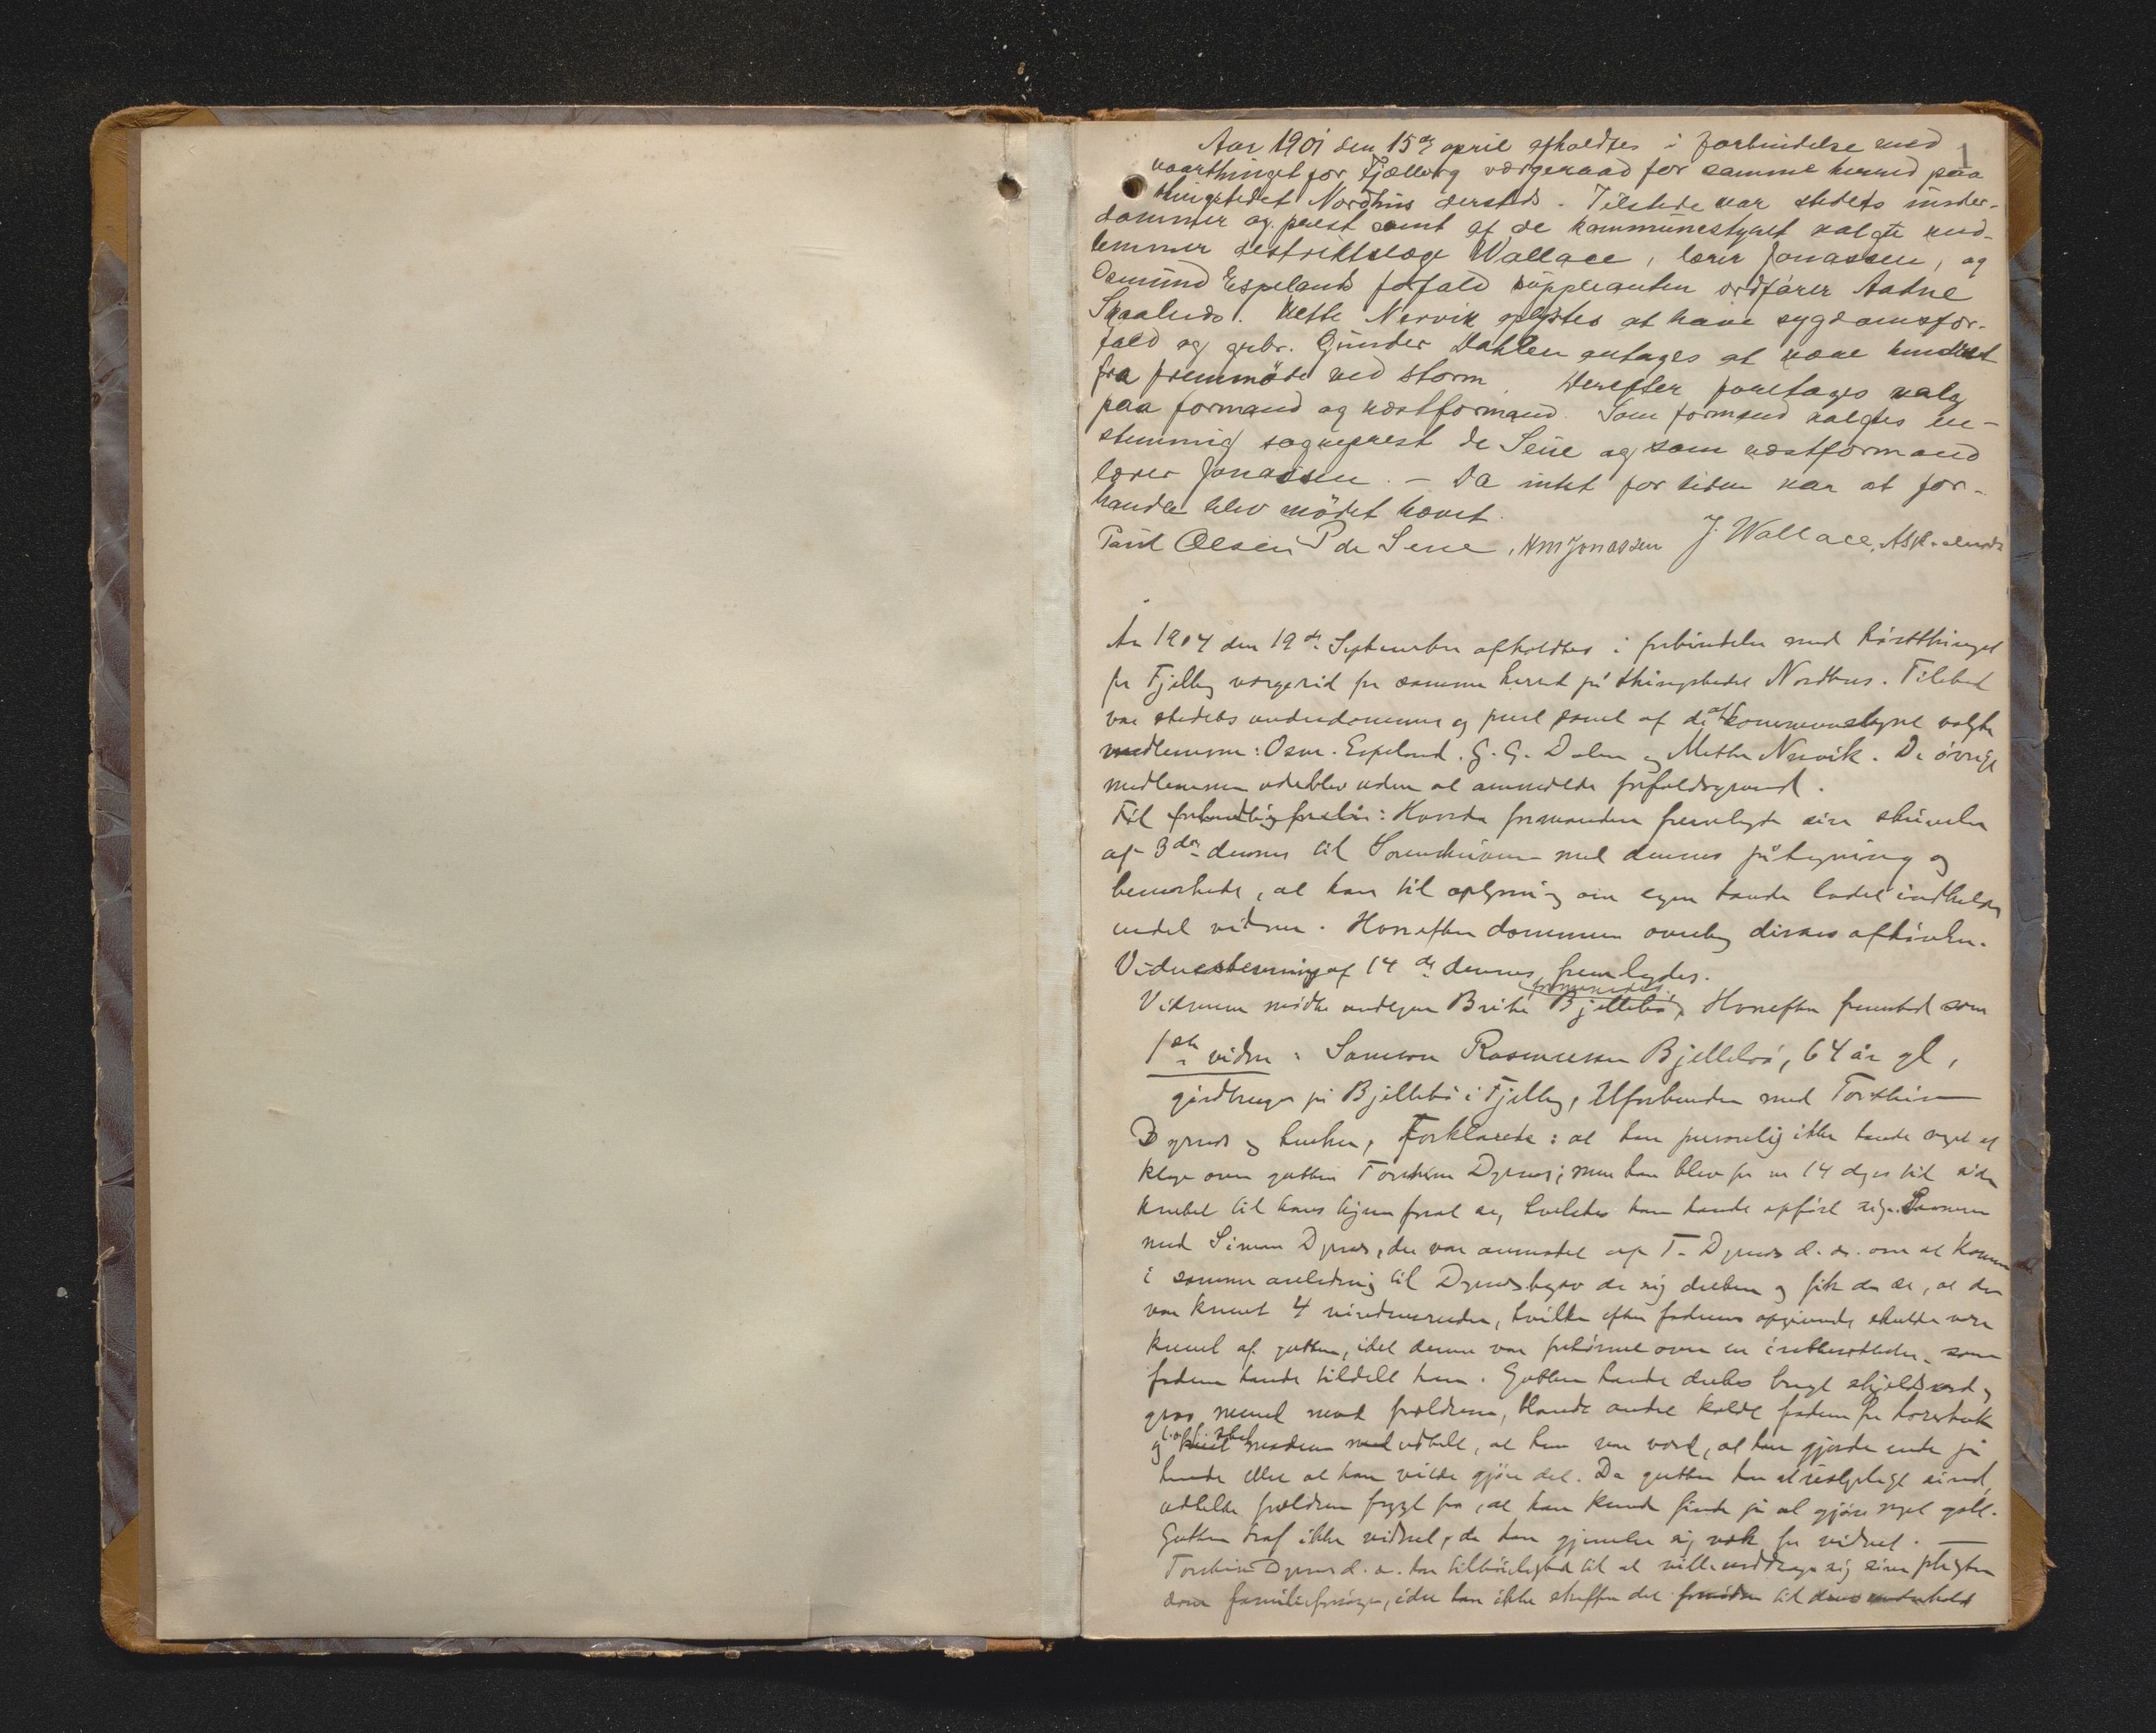 1
Aar 1901 den 15de april afholdtes i forbindelse med
vaarthinget for Fjælberg værgeraad for samme herred paa
thingstedet Nordhus dersteds. Tilstede var stedets under-
dommer og prest samt af de kommunestyret valgte med-
lemmer destriktslæge Wallace, lærer Jonassen, og
Osmund Espelands forfald suppleanten ordfører Aadne
Skaaluds. Mette Nervik oplystes at have sygdomsfor-
fald og grbr. Gunder Dahlen antages at være hindret
fra fremmöde ved storm. Derefter foretages valg
paa formand og næstformand. Som formand valgtes en-
stemmig sogneprest de Seue og som næstformand
lærer Jonassen. – Da intet for tiden var at for-
handle blev mödet hævet.
Paul Olsen P de Seue, HM Jonassen J. Wallace, ASkaaluds
År 1904 den 19de September afholdtes i forbindelse med hösttthinget
for Fjelberg vergeråd for samme herred på thingstedet Nordhus. Tilsted
var stedets underdommer og prest samt af de af kommunestyret valgte
medlemmer: Osm. Espeland. G. G. Dalen og Mette Nervik. De övrige
medlemmer udeblev uden at anmelde forfaldsgrund.
Til forhandling forelå: Hvorda formanden fremlagde sin skrivelse
af 3die dennes til Sorenskriveren med dennes påtegning og
bemerkede, at han til oplysning om sagen havde ladet indkalde
endel vidner. Hvorefter dommeren overtog dissses afhörelse.
Vidnestevning af 14de dennes fremlagdes.
Vidnerne mödte undtagen Brita Bjelleböe, Hvorefter fremstod som
1ste vidne: Samson Rasmussen Bjellebö, 64 år gl,
gårdbruger på Bjellebö i Fjelberg, Ubeslægtet med Torstein
Dyrnes og hustru, Forklarede: at han personlig ikke havde noget at
klage over gutten Torstein Dyrnes; men han blev for en 14 dages tid siden
kaldet til hans hjem for at se, hvorledes han havde opfört sig. Sammen
med Simon Dyrnes, der var anmodet af T. Dyrnes d. æ. om at komme
i samme anledning til Dyrnes begav de sig derhen og fik da se, at der
var knust 4 vinduesruder, hvilke efter faderens opgivende skulde være
knust af gutten, idet denne var fortörnet over en irettesættelse, som
faderen havde tildelt ham. Gutten havde derhos brugt skjeldsord og
grov mund mod forældrene, blandt andet kaldt faderen for horebuk
og moderen med udtalt, at hun var værd, at han gjorde ende på
hende eller at han vilde gjöre det. Da gutten har et ustyrligt sind,
udtalte forældrene frygt for, at han kunde finde på at gjöre noget galt.
Gutten traf ikke vidnet, da han gjemte sig væk for vidnet. —
Torstein Dyrnes d. æ. har tilböielighed til at ville unddrage sig sine pligter
som familieforsörger, idet han ikke skaffer det fornödne til deres underhold